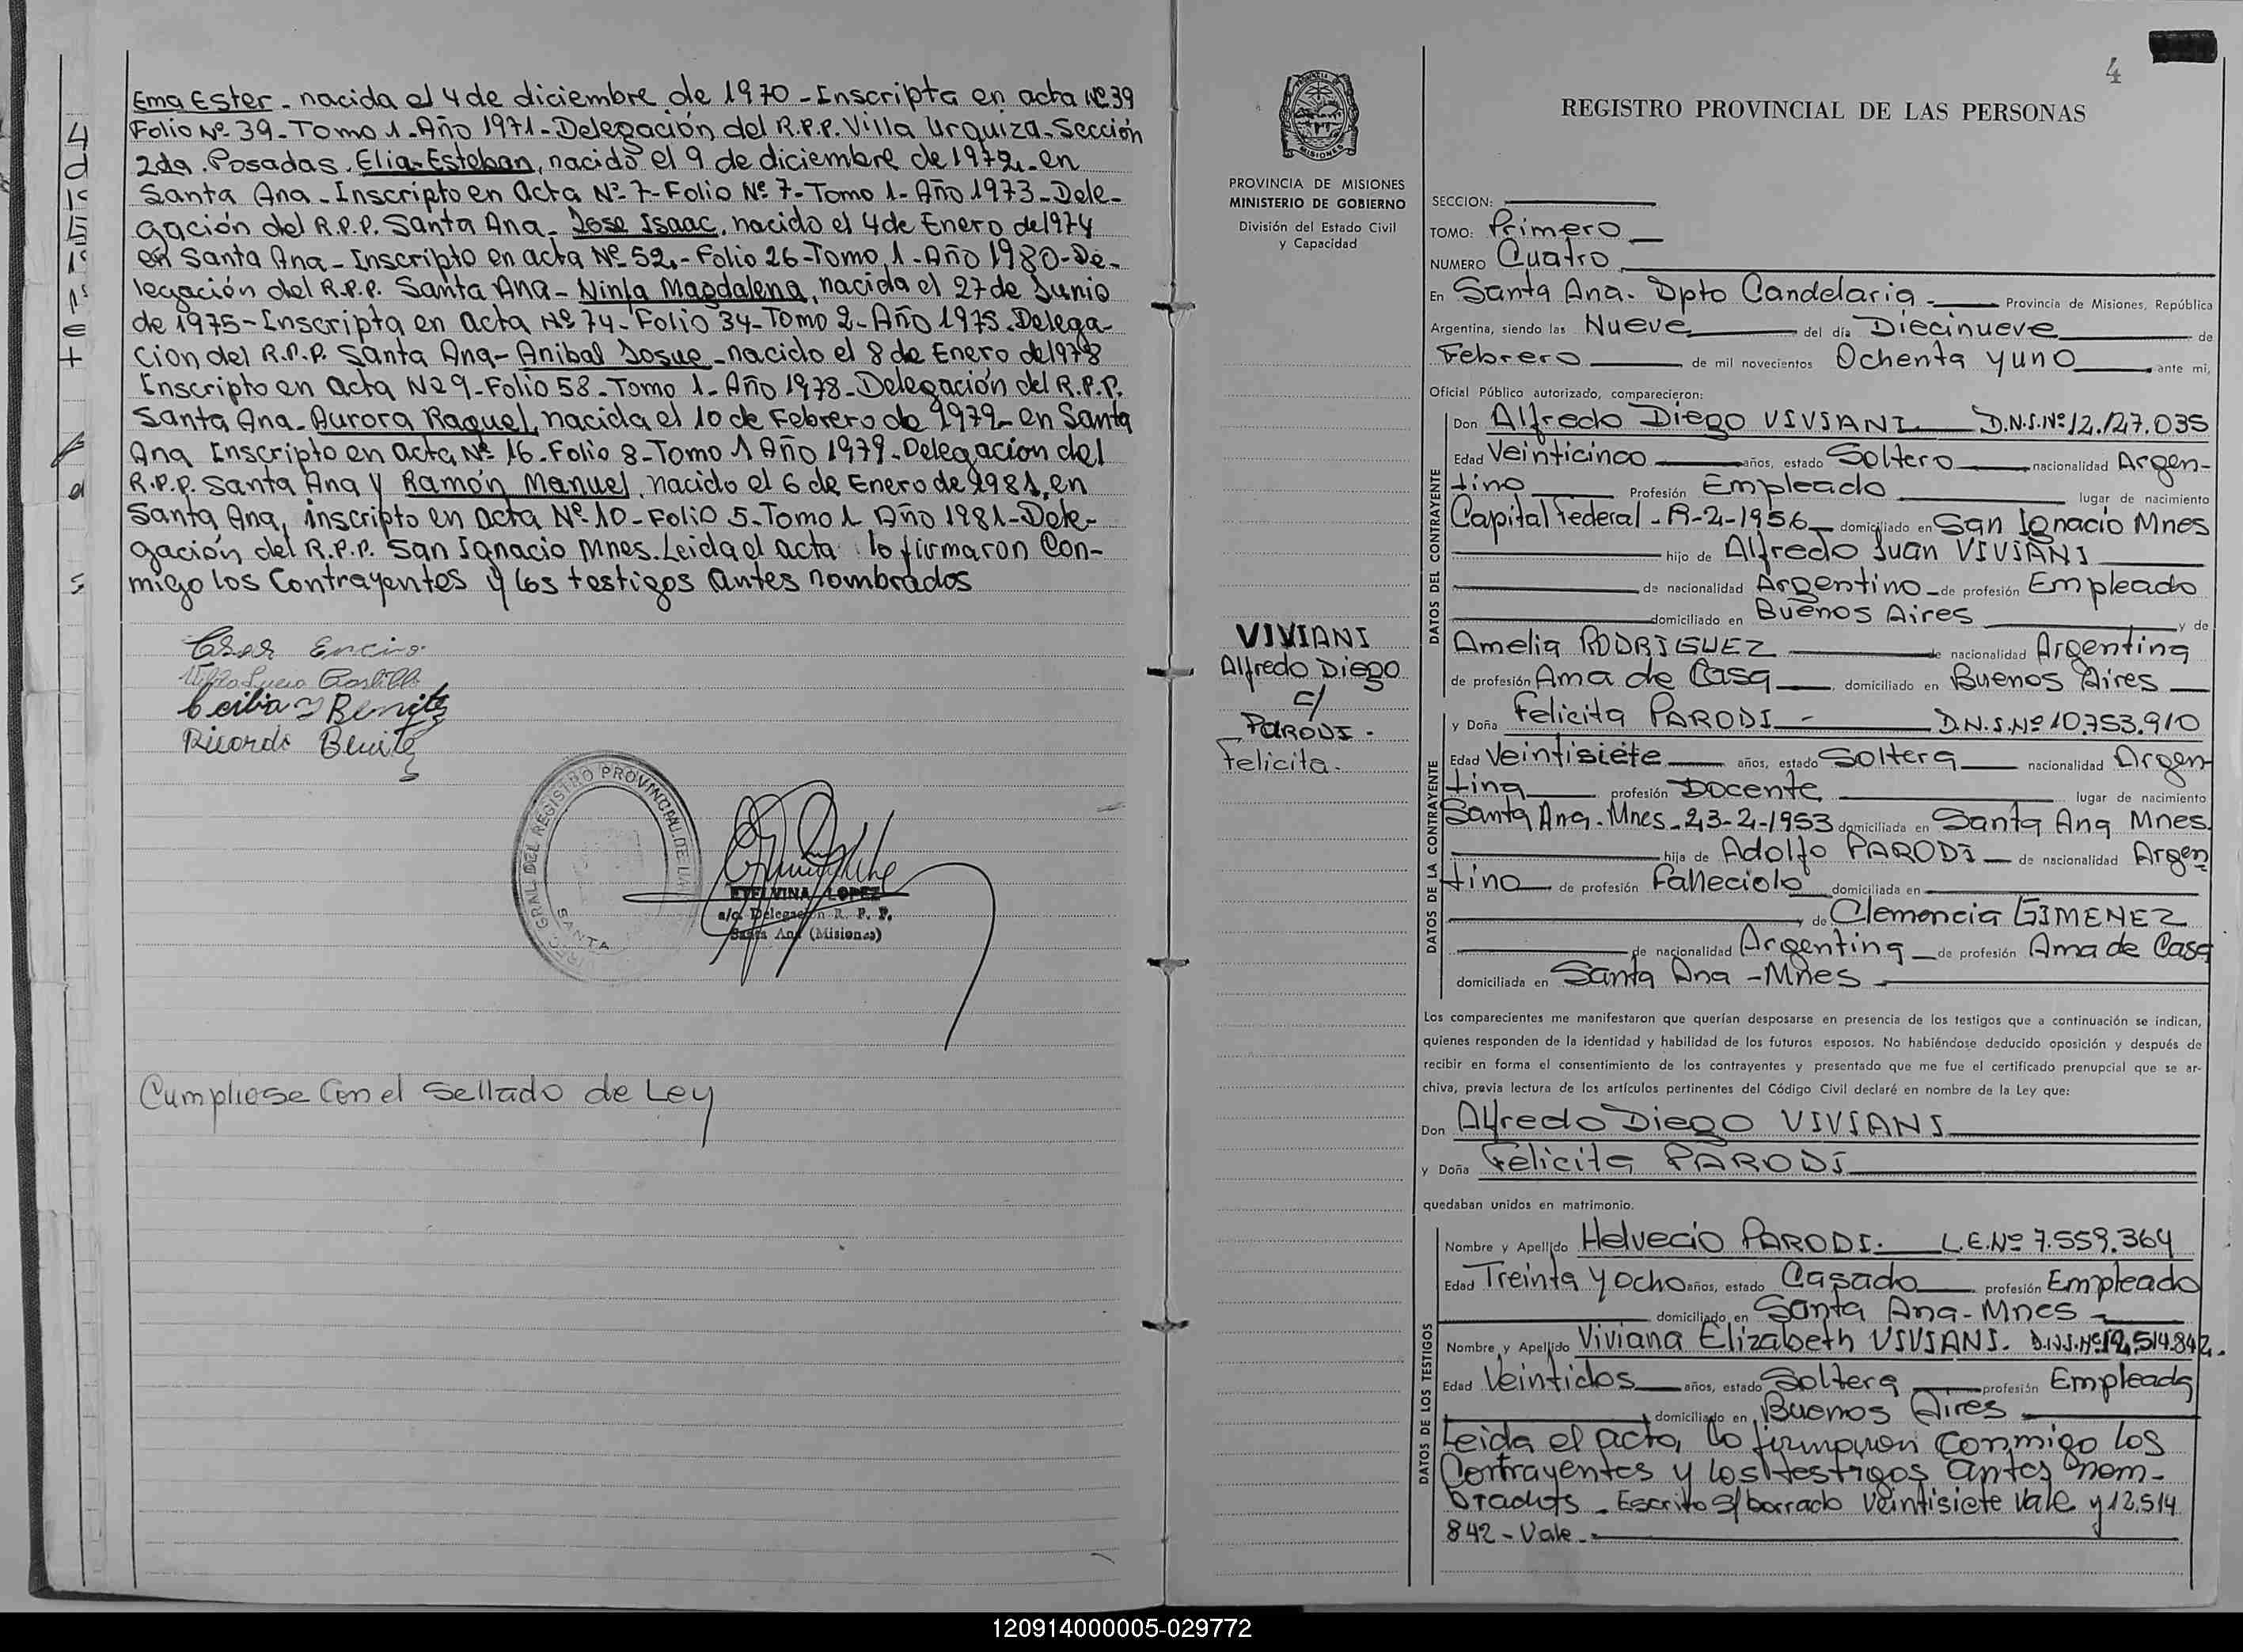 Ema Ester - nacida el 4 de diciembre de 1970 - Inscripta en acta Nº 39
Folio Nº 39 - Tomo 1 - Año 1971 - Delegación del R.P.P. Villa Urquiza - Sección
2da. Posadas. Elia Esteban, nacido el 9 de diciembre de 1972 - en
Santa Ana - Inscripto en Acta Nº 7 - Folio Nº 7 - Tomo 1 - Año 1973 - Dele-
gación del R.P.P. Santa Ana - Jose Isaac, nacido el 4 de Enero de 1974
en Santa Ana - Inscripto en acta Nº 52 - Folio 26 - Tomo 1 - Año 1980 - De-
legación del R.P.P. Santa Ana - Ninfa Magdalena, nacida el 27 de Junio
de 1975 - Inscripta en acta Nº 74 - Folio 34 - Tomo 2 - Año 1975 - Delega-
cion del R.P.P. Santa Ana - Anibal Josue - nacido el 8 de Enero de 1978
Inscripto en acta Nº 9 - Folio 58 - Tomo 1 - Año 1978 - Delegación del R.P.P.
Santa Ana - Aurora Raquel, nacida el 10 de Febrero de 1979 - en Santa
Ana Inscripto en acta Nº 16 - Folio 8 - Tomo 1 Año 1979 - Delegacion del
R.P.P. Santa Ana y Ramón Manuel, nacido el 6 de Enero de 1981, en
Santa Ana, inscripto en acta Nº 10 - Folio 5 - Tomo 1 Año 1981 - Dele-
gación del R.P.P. San Ignacio Mnes. Leida el acta lo firmaron Con-
migo los Contrayentes y los testigos antes nombrados
Ricardo Benitez
GRAL DEL REGISTRO PROVINCIAL DE LAS
SANTA
ETELVINA LOPEZ
a/c. Delegación R. P. P.
Santa Ana (Misiones)
Cumpliose Con el Sellado de Ley
4
REGISTRO PROVINCIAL DE LAS PERSONAS
MISIONES
PROVINCIA DE MISIONES
MINISTERIO DE GOBIERNO
División del Estado Civil
y Capacidad
VIVIANI
Alfredo Diego
c/
PARODI -
Felicita.
SECCION:
TOMO: Primero
NUMERO Cuatro
En Santa Ana. Dpto Candelaria - Provincia de Misiones, República
Argentina, siendo las Nueve del día Diecinueve de
Febrero de mil novecientos Ochenta y uno ante mi,
Oficial Público autorizado, comparecieron:
DATOS DEL CONTRAYENTE
Don Alfredo Diego VIVIANI D.N.I. Nº 12.127.035
Edad Veinticinco años, estado Soltero nacionalidad Argen-
tino Profesión Empleado lugar de nacimiento
Capital Federal - 12-2-1956 - domiciliado en San Ignacio Mnes
hijo de Alfredo Juan VIVIANI
de nacionalidad Argentino - de profesión Empleado
domiciliado en Buenos Aires y de
Amelia RODRIGUEZ de nacionalidad Argentina
de profesión Ama de Casa domiciliado en Buenos Aires
DATOS DE LA CONTRAYENTE
y Doña Felicita PARODI - D.N.I. Nº 10.753.910
Edad Veintisiete años, estado Soltera nacionalidad Argen-
tina profesión Docente lugar de nacimiento
Santa Ana. Mnes - 23-2-1953 domiciliada en Santa Ana Mnes.
hija de Adolfo PARODI - de nacionalidad Argen
tino de profesión Fallecido domiciliada en
y de Clemencia GIMENEZ
de nacionalidad Argentina - de profesión Ama de Casa
domiciliada en Santa Ana - Mnes
Los comparecientes me manifestaron que querían desposarse en presencia de los testigos que a continuación se indican,
quienes responden de la identidad y habilidad de los futuros esposos. No habiéndose deducido oposición y después de
recibir en forma el consentimiento de los contrayentes y presentado que me fue el certificado prenupcial que se ar-
chiva, previa lectura de los artículos pertinentes del Código Civil declaré en nombre de la Ley que:
Don Alfredo Diego VIVIANI
y Doña Felicita PARODI
quedaban unidos en matrimonio.
DATOS DE LOS TESTIGOS
Nombre y Apellido Helvecio PARODI. L.E. Nº 7.559.364
Edad Treinta y ocho años, estado Casado profesión Empleado
domiciliado en Santa Ana - Mnes
Nombre y Apellido Viviana Elizabeth VIVIANI. D.N.I. Nº 12.514.842.
Edad Veintidos años, estado Soltera profesión Empleada
domiciliado en Buenos Aires
Leida el acta, lo firmaron conmigo los
Contrayentes y los testigos antes nom-
brados - Escrito s/ borrado veintisiete Vale y 12.514
842 - Vale.
120914000005-029772